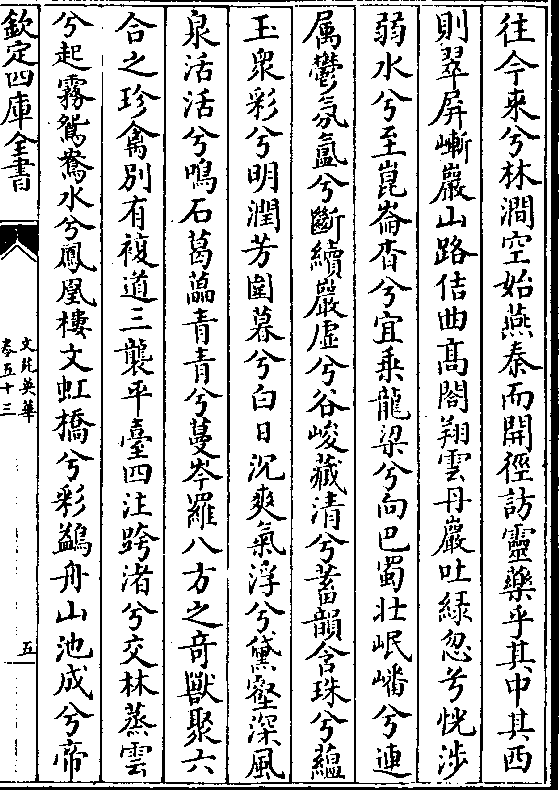 往今来兮林澗空始燕秦而開徑訪靈藥乎其中其西
則翠屏嶃巖山路佶曲高閣翔雲丹巖吐緑忽兮恍渉
弱水兮至崑崙杳兮宜乗龍梁兮向巴蜀壮岷嶓兮連
属鬱氛氲兮斷續巖虚兮谷峻藏清兮蓄韻含珠兮蘊
玉衆彩兮明潤芳園暮兮白日沉爽氣浮兮黛壑深風
泉活活兮鳴石葛藟青青兮蔓岑羅八方之竒獸聚六
合之珍禽别有複道三襲平臺四注跨渚兮交林蒸雲
兮起霧鴛鴦水兮鳳凰樓文虹橋兮彩鷁舟山池成兮帝
欽定四庫全書
文苑英華
卷五十三
五